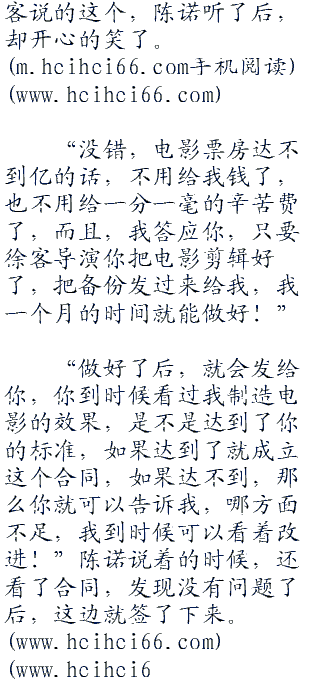 客说的这个，陈诺听了后，
却开心的笑了。
(m.hcihci66.com手机阅读)
(www.hcihci66.com)
“没错，电影票房达不
到亿的话，不用给我钱了，
也不用给一分一毫的辛苦费
了，而且，我答应你，只要
徐客导演你把电影剪辑好
了，把备份发过来给我，我
一个月的时间就能做好！”
“做好了后，就会发给
你，你到时候看过我制造电
影的效果，是不是达到了你
的标准，如果达到了就成立
这个合同，如果达不到，那
么你就可以告诉我，哪方面
不足，我到时候可以看着改
进！”陈诺说着的时候，还
看了合同，发现没有问题了
后，这边就签了下来。
(www.hcihci66.com)
(www.hcihci6